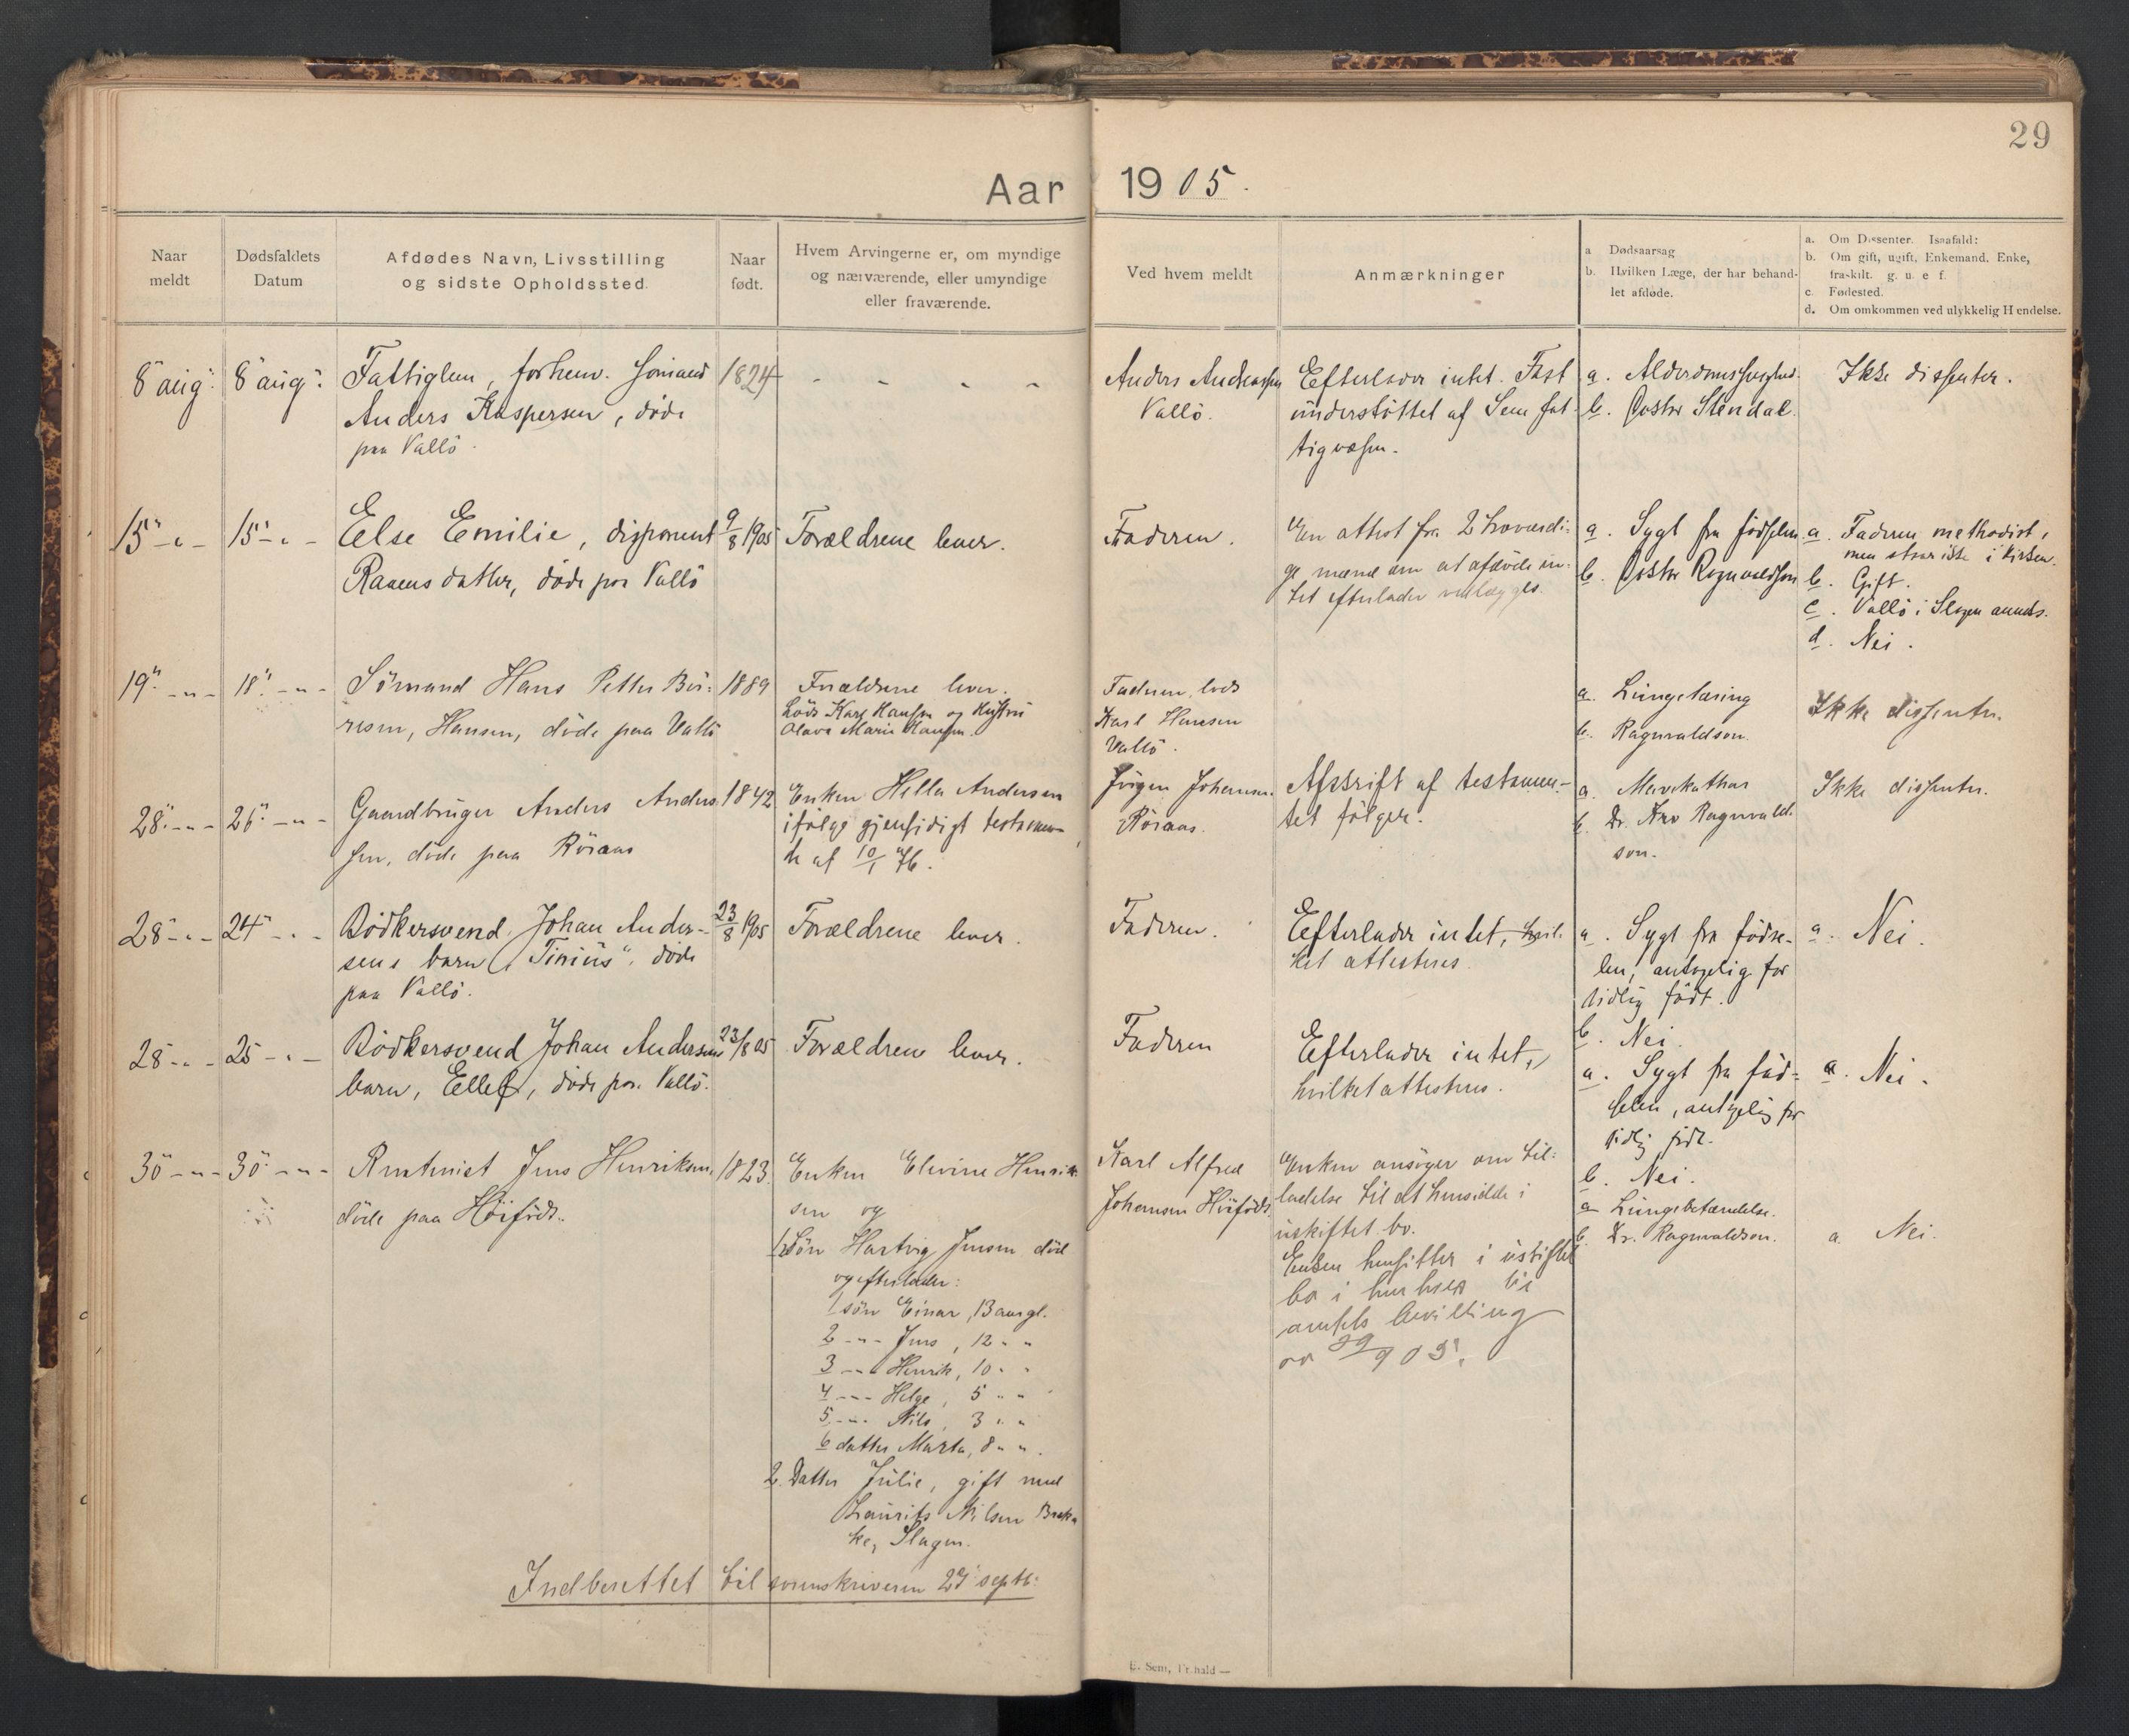 29
Aar 1905.
Naar meldt
Dødsfaldets Datum
Afdødes Navn, Livsstilling og sidste Opholdssted.
Naar født.
Hvem Arvingerne er, om myndige og nærværende, eller umyndige eller fraværende.
Ved hvem meldt
Anmærkninger
a Dødsaarsag
b. Hvilken Læge, der har behandlet afdøde.
a. Om Dissenter. Isaafald:
b. Om gift, ugift, Enkemand, Enke, fraskilt. g. u. e f.
c. Fødested.
d. Om omkommen ved ulykkelig Hendelse.
8 aug. 8 aug.
Fattiglem, forhenv. sømand
Anders Kaspersen, døde
paa Vallö.
1824
Anders Andreassen
Vallö.
Efterlader intet. Fast
understöttet af Sem fat-
tigvæsen.
b. Doktor Stendal.
Ikke dissenter.
15 - " - 15 - " -
Else Emilie, disponent
Raaens datter, döde paa Vallö
9/8 1905
Forældrene lever.
Faderen.
En attest fra 2 troværdi-
ge mænd om at afdøde in-
tet efterlader vedlægges.
a. Sygt fra födselen.
b. Doktor Ragnvaldson
a. Faderen methodist,
men staar ikke i kirken.
b. Gift.
c. Vallö i Slagen
d. Nei.
19 - " - 18 - " -
Sömand Hans Petter
Hansen, döde paa Vallö
1889
Forældrene lever.
Lods Karl Hansen og Hustru
Olava Marie Hansen.
Faderen, lods
Karl Hansen
Vallö.
a.
b. Ragnvaldson.
Ikke dissenter.
28 - " - 26 - " -
Gaardbruger Anders Anders-
sen, döde paa Röraas
1842
Enken Hella Andersen
ifølge gjensidigt testamen-
te af 10/1 76.
Jörgen Johansen.
Röraas.
Afskrift af testamen-
tet følger.
a. Mavekathar
b. Dr. Ragnvald-
son.
Ikke dissenter.
28 - " - 24 - " -
Bödkersvend Johan Ander-
sens barn "Tinius", döde
paa Vallö.
23/8 1905
Forældrene lever.
Faderen.
Efterlader intet, hvil-
ket attesteres.
a. Sygt fra födse-
len, antagelig for
tidlig födt.
b. Nei.
a. Nei.
28 - " - 25 - " -
Bödkersvend Johan Andersens
barn, Ellef, döde paa Vallö.
23/8 05
Forældrene lever.
Faderen
Efterlader intet,
hvilket attesteres.
a. Sygt fra föd-
selen, antagelig for
tidlig födt.
b. Nei.
a. Nei.
30 - " - 30 - " -
Rentenist Jens Henriksen,
döde paa Höifödt.
1823.
Enken Elevine Henrik-
sen og
1. Sön Hartvig Jensen död
og efterlader:
1 sön Einar, 13 aar gl.
2 - " - Jens, 12 " "
3 - " - Henrik, 10 " "
4 - " - Helge, 5 " "
5 - " - Nils, 3 " "
6 datter Marta, 8 " "
2. Datter Julie, gift med
Laurits Nilsen Bræk-
ke, Slagen.
Karl Alfred
Johansen Höifödt.
Enken ansöger om til-
ladelse til at hensidde i
uskiftet bo.
Enken hensitter i uskiftet
bo i henhold til
amtets bevilling
a Lungebetændelse.
b. Dr. Ragnvaldson.
a. Nei.
Indberettet til sorenskriveren 29 septb.